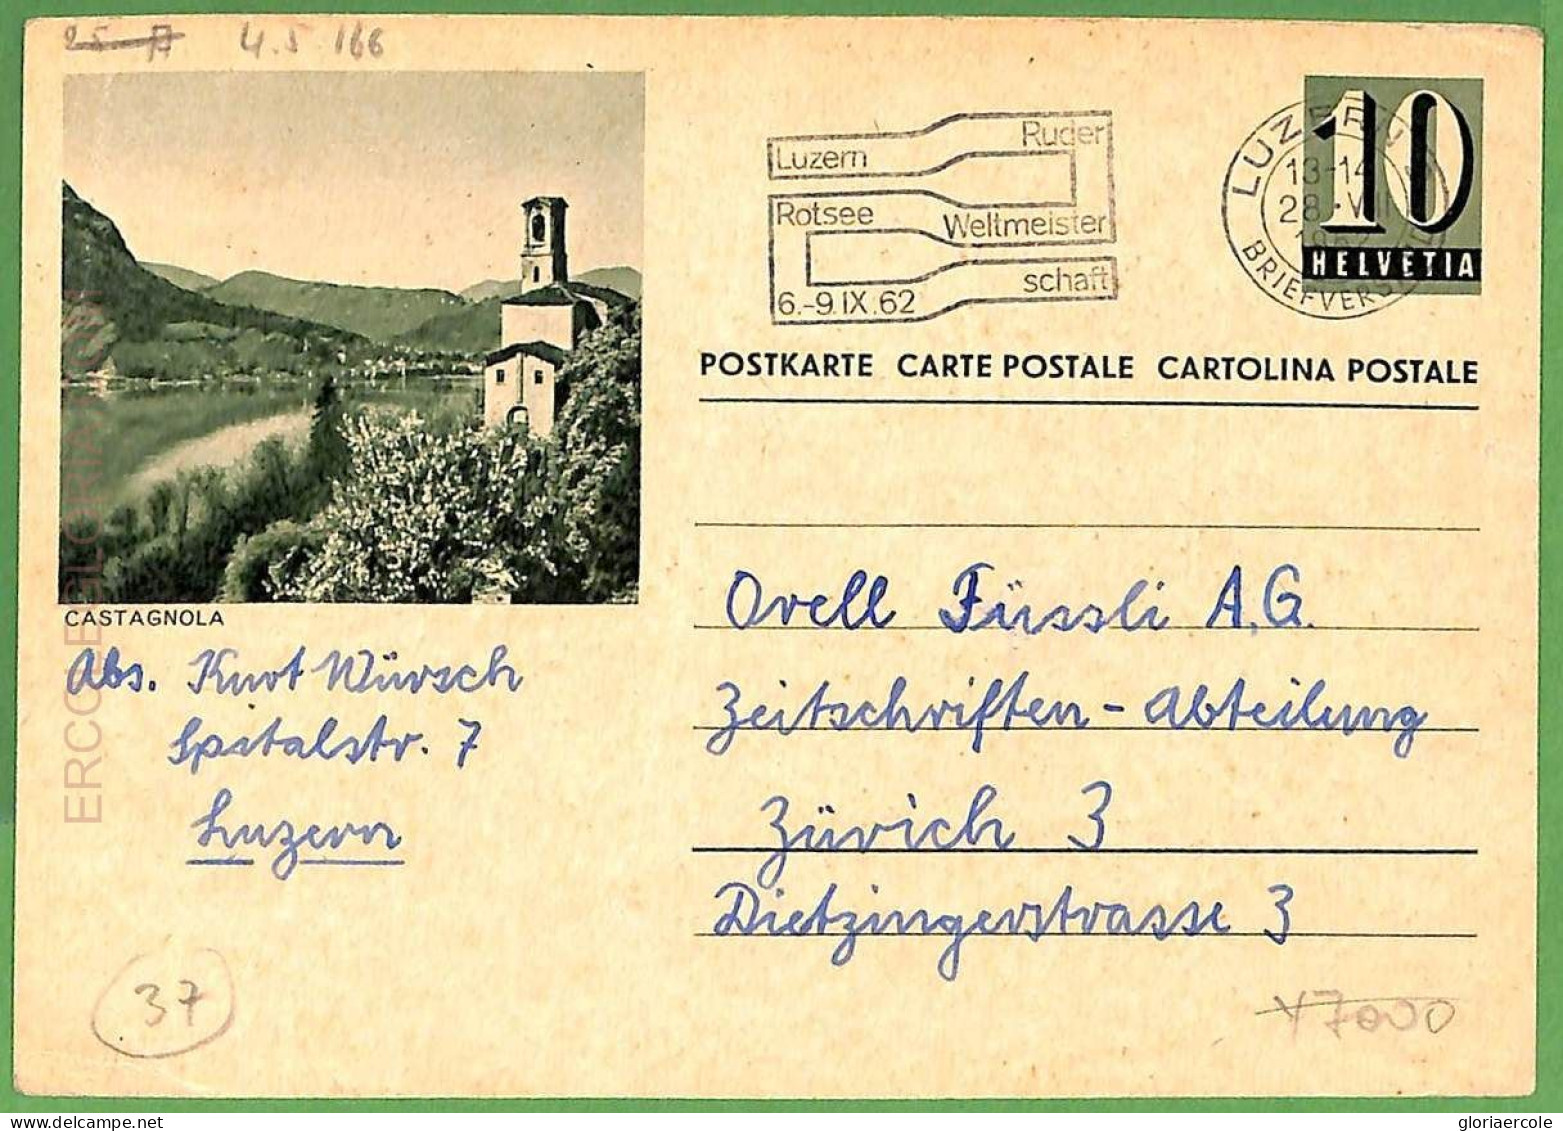 4.5 166
Luzern Ruder
Rotsee Weltmeister
schaft
6.-9.IX.62
LUZERN
13-14
28.
BRIEFVERS
10
HELVETIA
POSTKARTE CARTE POSTALE CARTOLINA POSTALE
CASTAGNOLA
Abs. Kurt Würsch
Spitalstr. 7
Luzern
Orell Füssli A.G.
Zeitschriften-Abteilung
Zürich 3
Dietzingerstrasse 3
37
¥7000
gloriaercole